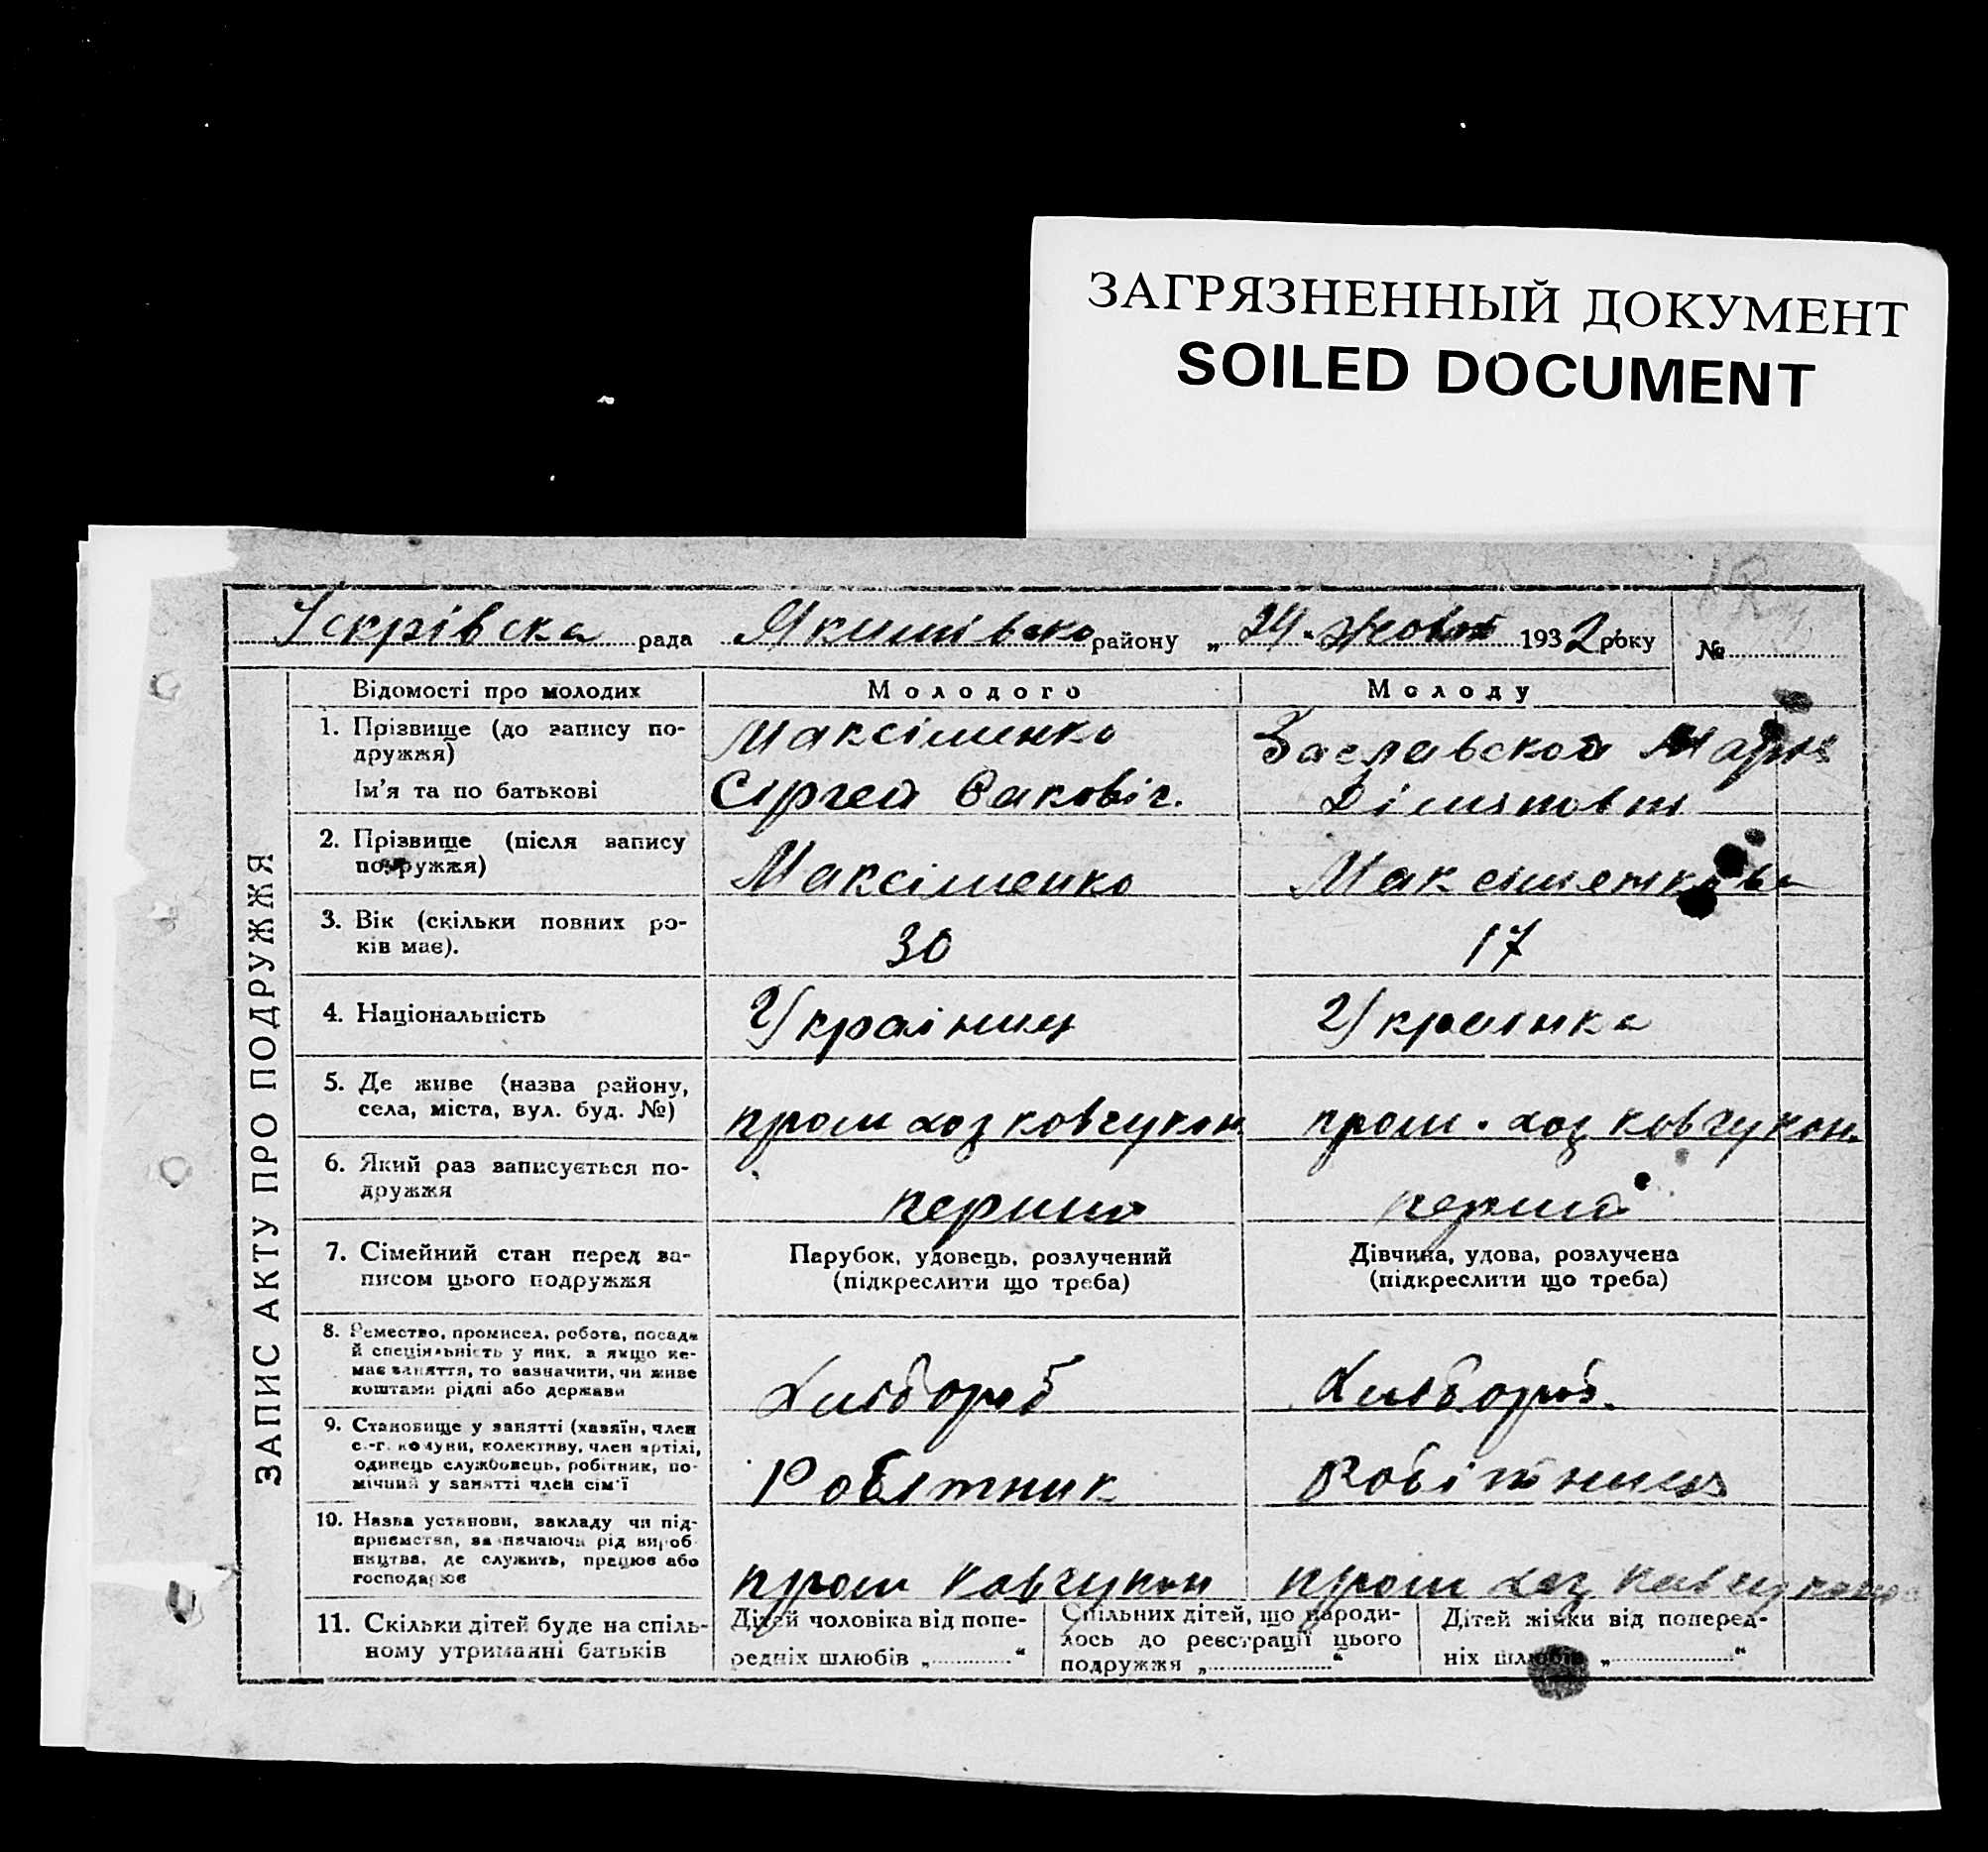 ЗАГРЯЗНЕННЫЙ ДОКУМЕНТ
SOILED DOCUMENT
Іскрівска рада Якимівско району „ 24 " жовт 1932 року №
ЗАПИС АКТУ ПРО ПОДРУЖЖЯ
Відомості про молодих Молодого Молоду
1. Прізвище (до запису по-
дружжя)
Максіменко
Заславской Марія
Ім'я та по батькові
Сергей
2. Прізвище (після запису
подружжя)
Максіменко
Максименкова
3. Вік (скільки повних ро-
ків має).
30
17
4. Національність
Украінец
Украинка
5. Де живе (назва району,
села, міста, вул. буд. №)
пром хоз ковчукон
пром. хоз ковчукон.
6. Який раз записується по-
дружжя
перший
перший
7. Сімейний стан перед за-
писом цього подружжя
Парубок, удовець, розлучений
(підкреслити що треба)
Дівчина, удова, розлучена
(підкреслити що треба)
8. Ремество, промисел, робота, посада
й спеціяльність у них, а якщо не-
має заняття, то зазначити, чи живе
коштами рідні або держави
Хлібороб
Хлібороб.
9. Становище у занятті (хазяїн, член
с.-г. комуни, колективу, член артілі,
одинець службовець, робітник, по-
мічний у занятті член сім'ї
Робітник
Робітниця
10. Назва установи, закладу чи під-
приємства, зазначаючи рід вироб-
ництва, де служить, працює або
господарює
пром ковчукон
пром хоз
11. Скільки дітей буде на спіль-
ному утриманні батьків
Дітей чоловіка від попе-
редніх шлюбів „ "
Спільних дітей, що народи-
лось до реєстрації цього
подружжя „ "
Дітей жінки від поперед-
ніх шлюбів „ "